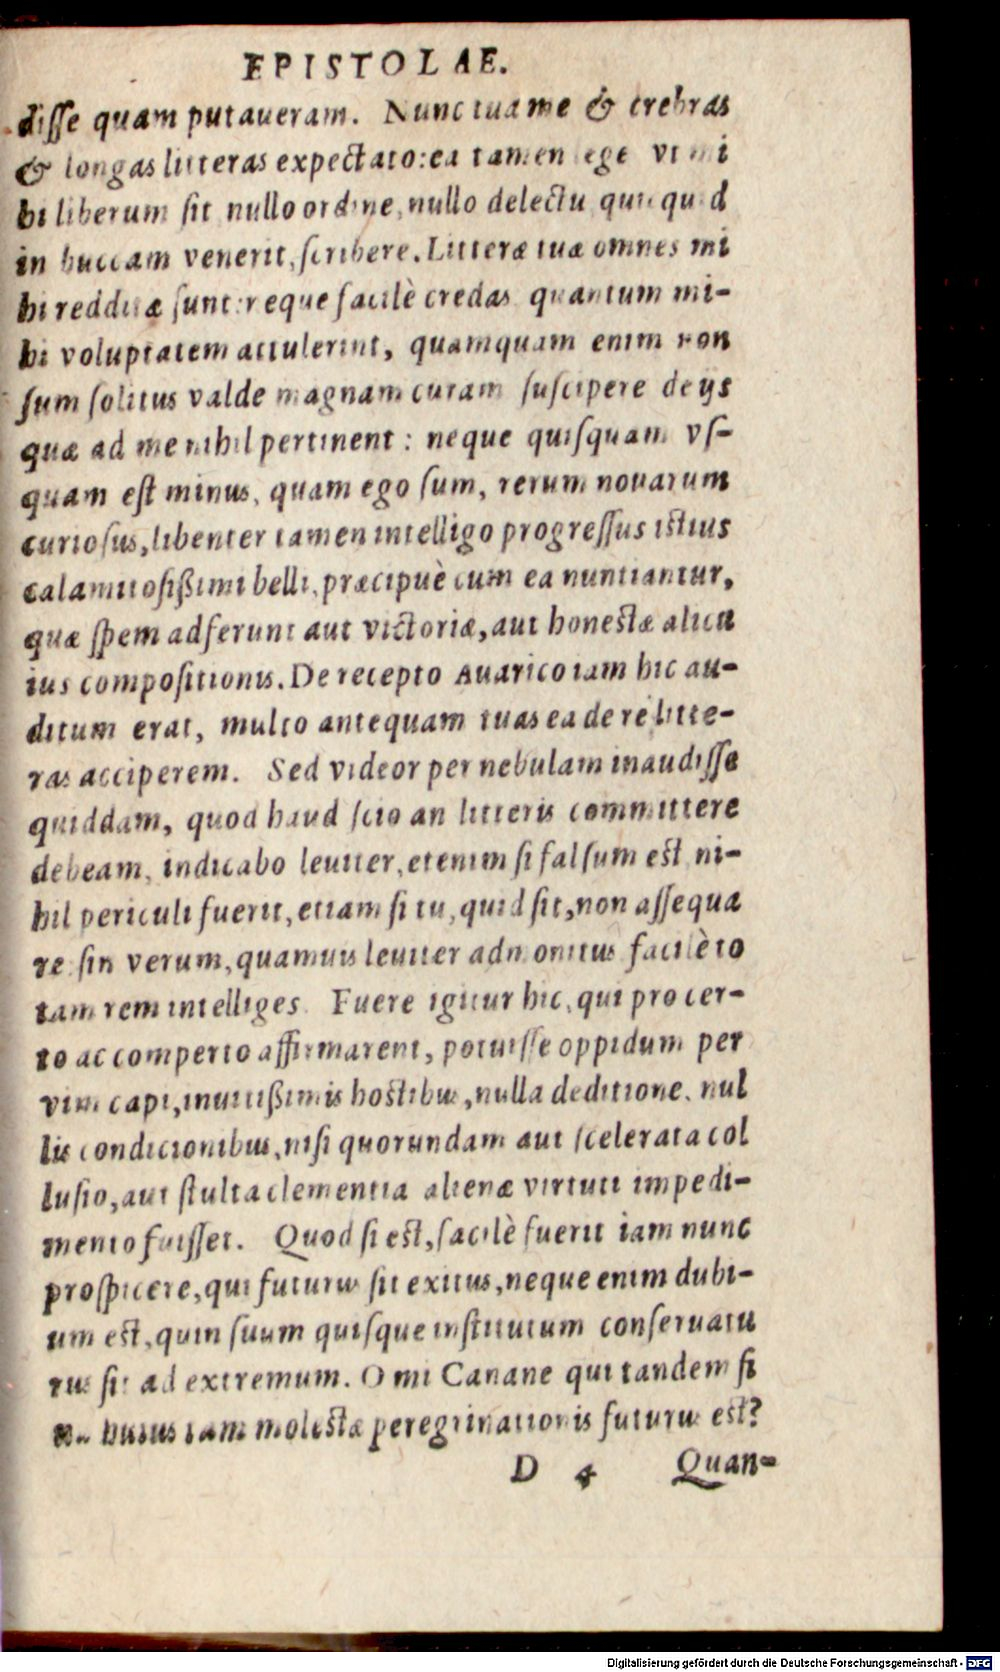 EPISTOLAE.
disse quam putaueram. Nunc tua me & crebras
& longas litteras expectato: ea tamen lege vt mi
hi liberum sit nullo ordine, nullo delectu quicquid
in buccam venerit, scribere. Litteræ tuæ omnes mi
hi redditæ sunt: neque facilè credas quantum mi-
hi voluptatem attulerint, quamquam enim non
sum solitus valde magnam curam suscipere de ijs
quæ ad me nihil pertinent: neque quisquam vs-
quam est minus, quam ego sum, rerum nouarum
curiosus, libenter tamen intelligo progressus istius
calamitosißimi belli, præcipuè cum ea nuntiantur,
quæ spem adferunt aut victoriæ, aut honestæ alicu
ius compositionis. De recepto Auarico iam hic au-
ditum erat, multo antequam tuas ea de re litte-
ras acciperem. Sed videor per nebulam inaudisse
quiddam, quod haud scio an litteris committere
debeam, indicabo leuiter, etenim si falsum est ni-
hil periculi fuerit, etiam si tu, quid sit, non assequa
re: sin verum, quamuis leuiter admonitus facilè to
tam rem intelliges. Fuere igitur hic, qui pro cer-
to ac comperto affirmarent, potuisse oppidum per
vim capi, inuitißimis hostibus, nulla deditione, nul
lis condicionibus, nisi quorundam aut scelerata col
lusio, aut stulta clementia alienæ virtuti impedi-
mento fuisset. Quod si est, facilè fuerit iam nunc
prospicere, qui futurus sit exitus, neque enim dubi-
um est, quin suum quisque institutum conseruatu
rus sit ad extremum. O mi Canane qui tandem fi
huius tam molestæ peregrinationis futurus est?
D 4 Quan-
Digitalisierung gefördert durch die Deutsche Forschungsgemeinschaft - DFG